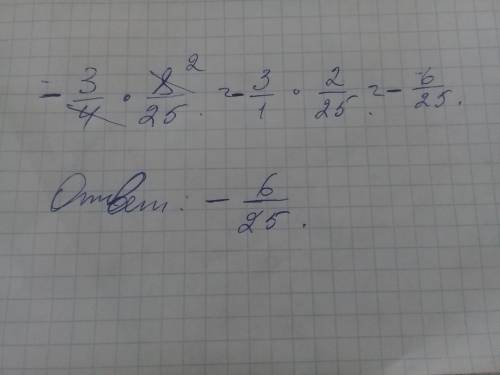 - 3/4 · 8/25 = - 3/1 · 2/25 = - 6/25.
Ответ: - 6/25.